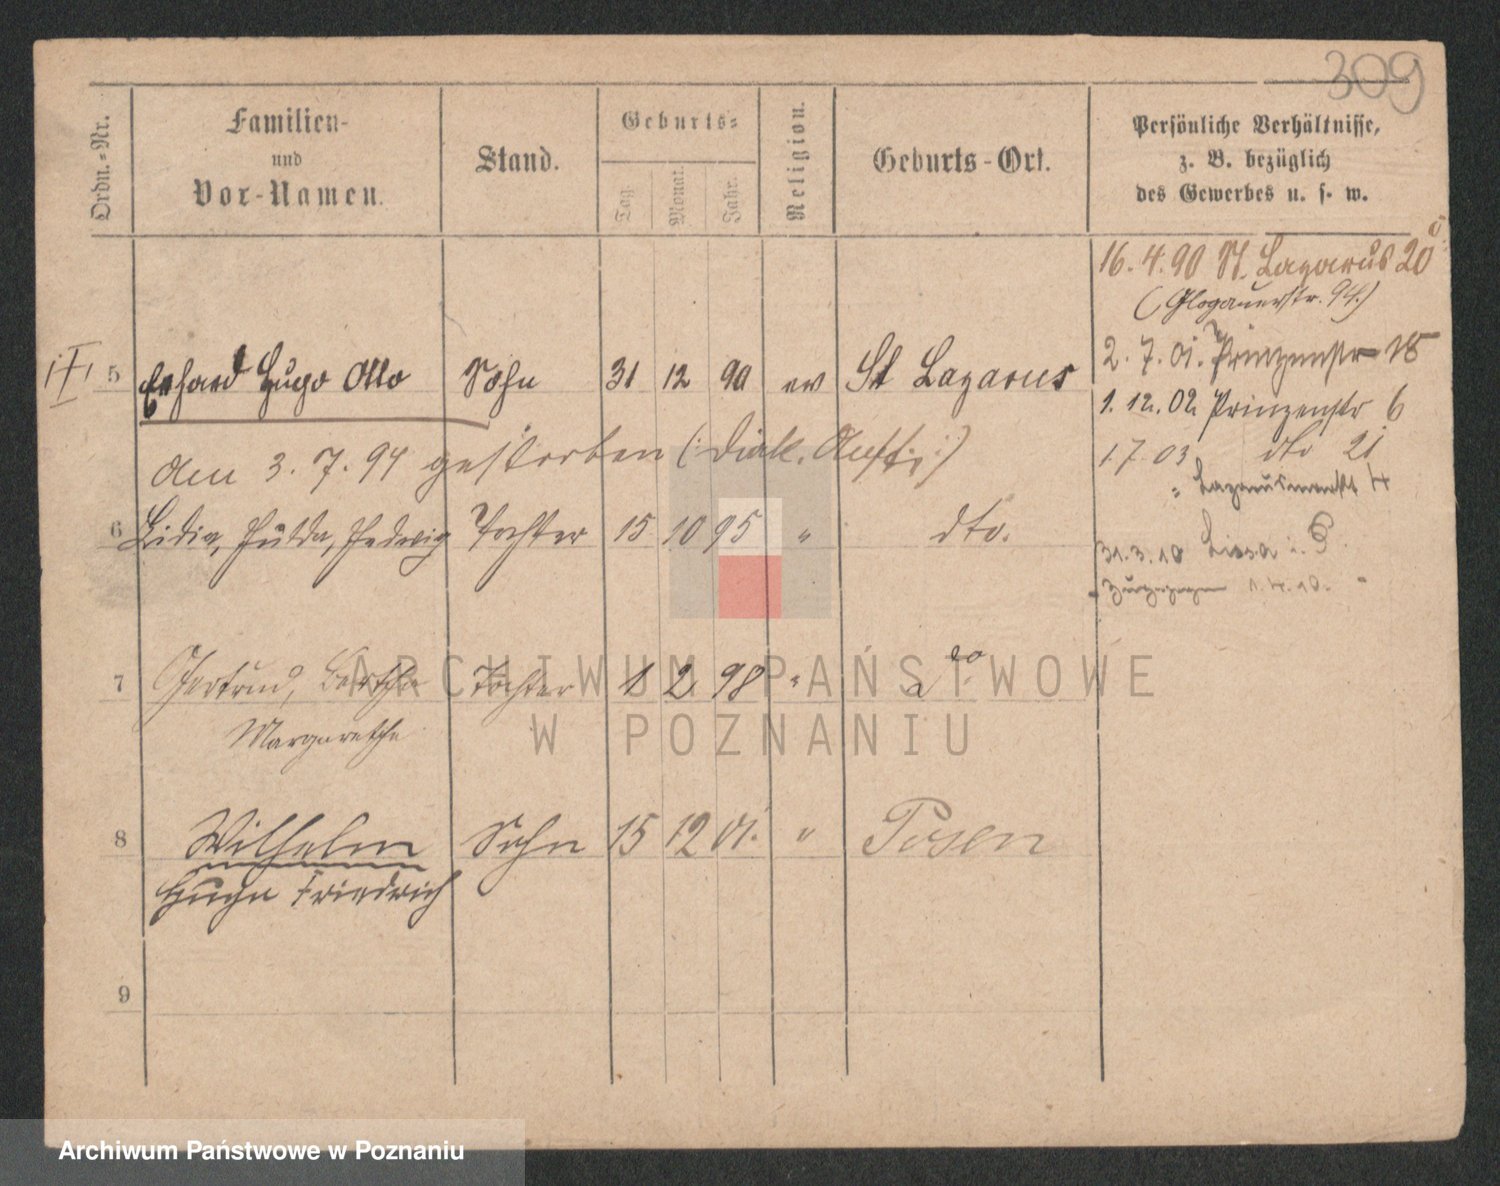 309
Ordn.-Nr.
Familien-
und
Vor-Namen.
Stand.
Geburts-
Tag
Monat.
Jahr.
Religion.
Geburts-Ort.
Persönliche Verhältnisse,
z. B. bezüglich
des Gewerbes u. s. w.
16. 4. 90 St. Lazarus 20
(Glogauerstr. 94.)
2. 7. 01. Prinzenstr 18
5 Erhard Hugo Otto Sohn 31 12 90 ev St Lazarus
1. 12. 02 Prinzenstr 6
am 3. 7. 94 gestorben (:
1 7 03 dto 21
6 Lidia, Hulda, Hedwig Tochter 15 10 95 " dto.
" Lazarusmarkt 4
31. 3. 10 Lissa i. P.
1. 4. 10.
7 Gertrud, Bertha Tochter 1 2 98 " do
Margarethe
8 Wilhelm Sohn 15 12 01. " Posen
Hugo Friedrich
9
ARCHIWUM PAŃSTWOWE
W POZNANIU
Archiwum Państwowe w Poznaniu